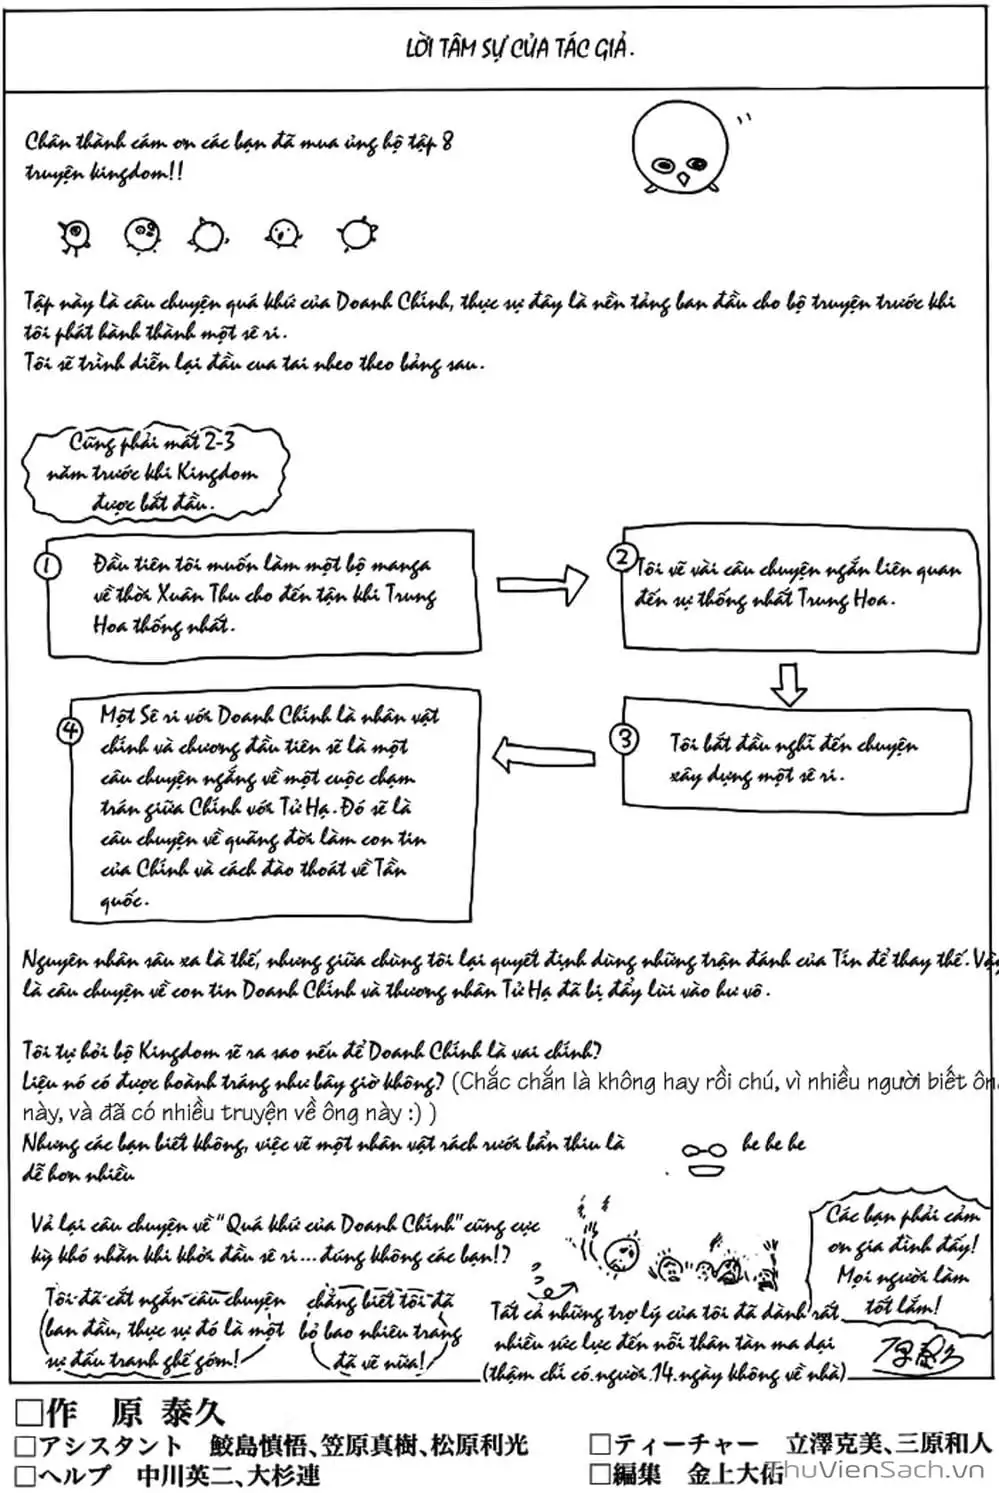 LỜI TÂM SỰ CỦA TÁC GIẢ.
Chân thành cám ơn các bạn đã mua ủng hộ tập 8
truyện kingdom!!
Tập này là câu chuyện quá khứ của Doanh Chính, thực sự đây là nền tảng ban đầu cho bộ truyện trước khi
tôi phát hành thành một sê ri.
Tôi sẽ trình diễn lại đầu cua tai nheo theo bảng sau.
Cũng phải mất 2-3
năm trước khi Kingdom
được bắt đầu.
1
Đầu tiên tôi muốn làm một bộ manga
về thời Xuân Thu cho đến tận khi Trung
Hoa thống nhất.
2
Tôi vẽ vài câu chuyện ngắn liên quan
đến sự thống nhất Trung Hoa.
3
Tôi bắt đầu nghĩ đến chuyện
xây dựng một sê ri.
4
Một Sê ri với Doanh Chính là nhân vật
chính và chương đầu tiên sẽ là một
câu chuyện ngắng về một cuộc chạm
trán giữa Chính với Tử Hạ. Đó sẽ là
câu chuyện về quãng đời làm con tin
của Chính và cách đào thoát về Tần
quốc.
Nguyên nhân sâu xa là thế, nhưng giữa chùng tôi lại quyết định dùng những trận đánh của Tín để thay thế. Vậy
là câu chuyện về con tin Doanh Chính và thương nhân Tử Hạ đã bị đẩy lùi vào hư vô.
Tôi tự hỏi bộ Kingdom sẽ ra sao nếu để Doanh Chính là vai chính?
Liệu nó có được hoành tráng như bây giờ không? (Chắc chắn là không hay rồi chú, vì nhiều người biết ông
này, và đã có nhiều truyện về ông này :) )
Nhưng các bạn biết không, việc vẽ một nhân vật rách rưới bẩn thiu là
dễ hơn nhiều
he he he
Vả lại câu chuyện về "Quá khứ của Doanh Chính" cũng cực
kỳ khó nhằn khi khởi đầu sê ri... đúng không các bạn!?
Tôi đã cắt ngắn câu chuyện
ban đầu, thực sự đó là một
sự đấu tranh ghê góm!
chẳng biết tôi đã
bỏ bao nhiêu trang
đã vẽ nữa!
Tất cả những trợ lý của tôi đã dành rất
nhiều sức lực đến nỗi thân tàn ma dại
(thậm chí có người 14 ngày không về nhà)
Các bạn phải cảm
ơn gia đình đấy!
Mọi người làm
tốt lắm!
□作 原 泰久
□アシスタント 鮫島慎悟、笠原真樹、松原利光
□ヘルプ 中川英二、大杉連
□ティーチャー 立澤克美、三原和人
□編集 金上大佑
ThuVienSach.vn